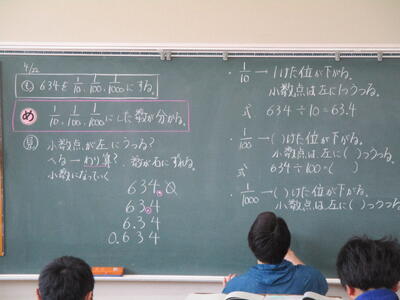 4/22
も 634を 1/10, 1/100, 1/1000にする。
め 1/10, 1/100, 1/1000にした数が分かる。
見 小数点が左にうつる?
へる→わり算? 数が右にずれる。
小数になっていく
634.0
63.4
6.34
0.634
・1/10→1けた位が下がる。
小数点は左に1つうつる。
式 634÷10=63.4
・1/100→( )けた位が下がる。
小数点は左に( )つうつる。
式 634÷100=( )
・1/1000→( )けた位が下がる。
小数点は左に( )つうつる